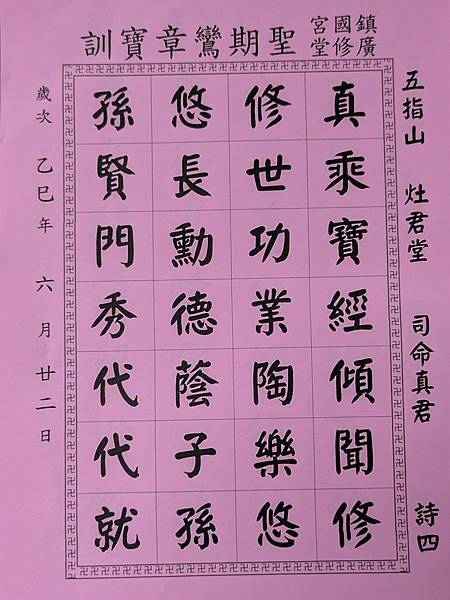 鎮國宮
廣修堂
聖期鸞章寶訓
五指山 灶君堂 司命真君 詩四
真乘寶經傾聞修
修世功業陶樂悠
悠長勳德蔭子孫
孫賢門秀代代就
歲次 乙巳年 六月廿二日